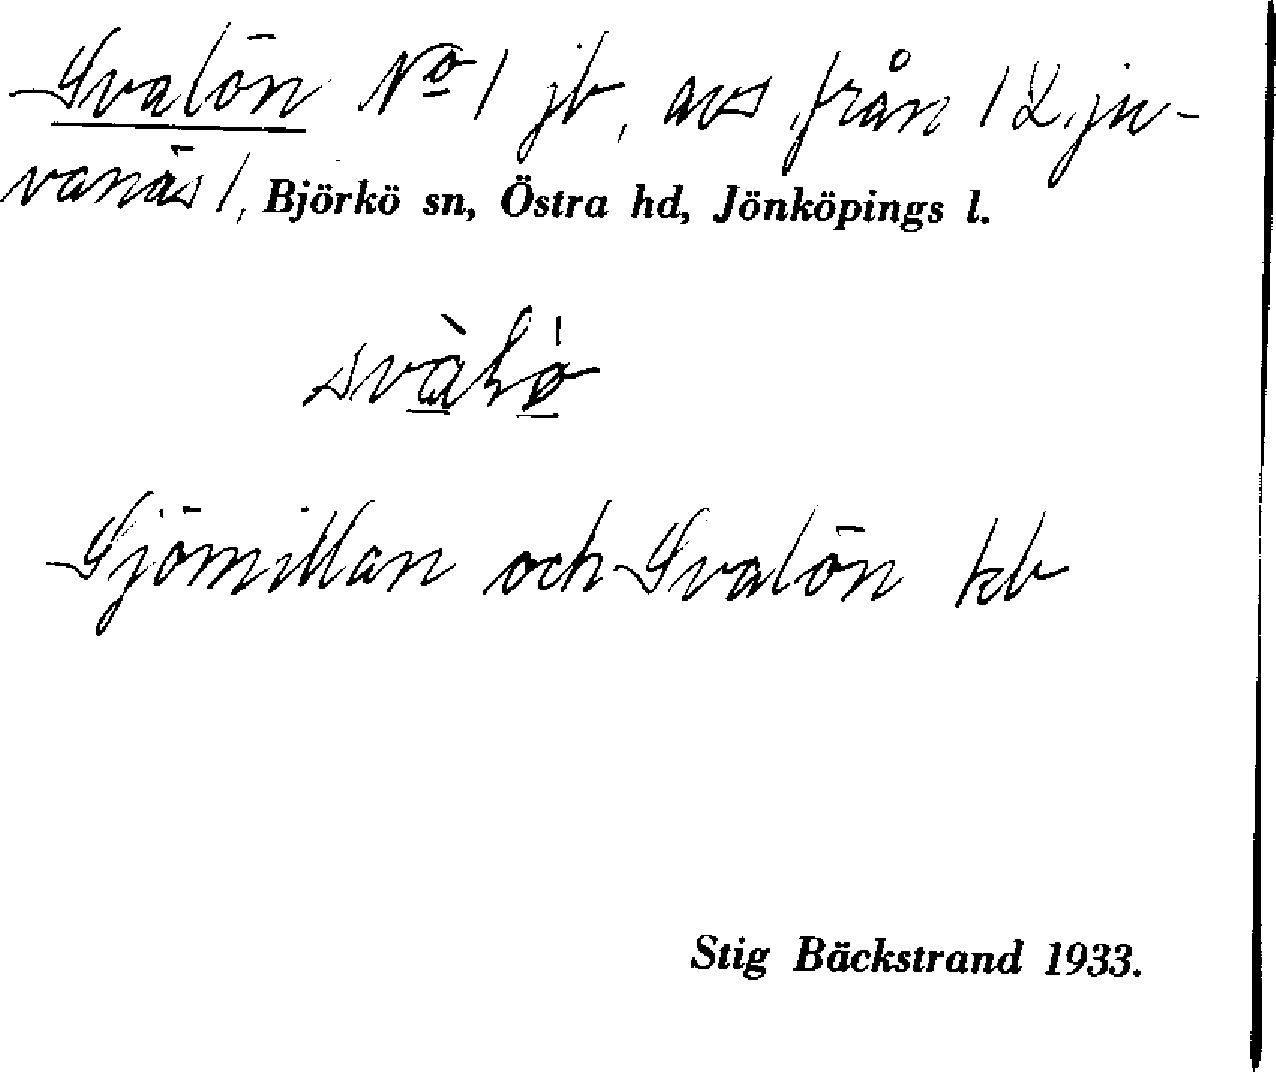 Svalön № 1 jb, avs från 1 Ljuvanäs 1, Björkö sn, Östra hd, Jönköpings l.
Sjömillan och Svalön kb
Stig Bäckstrand 1933.